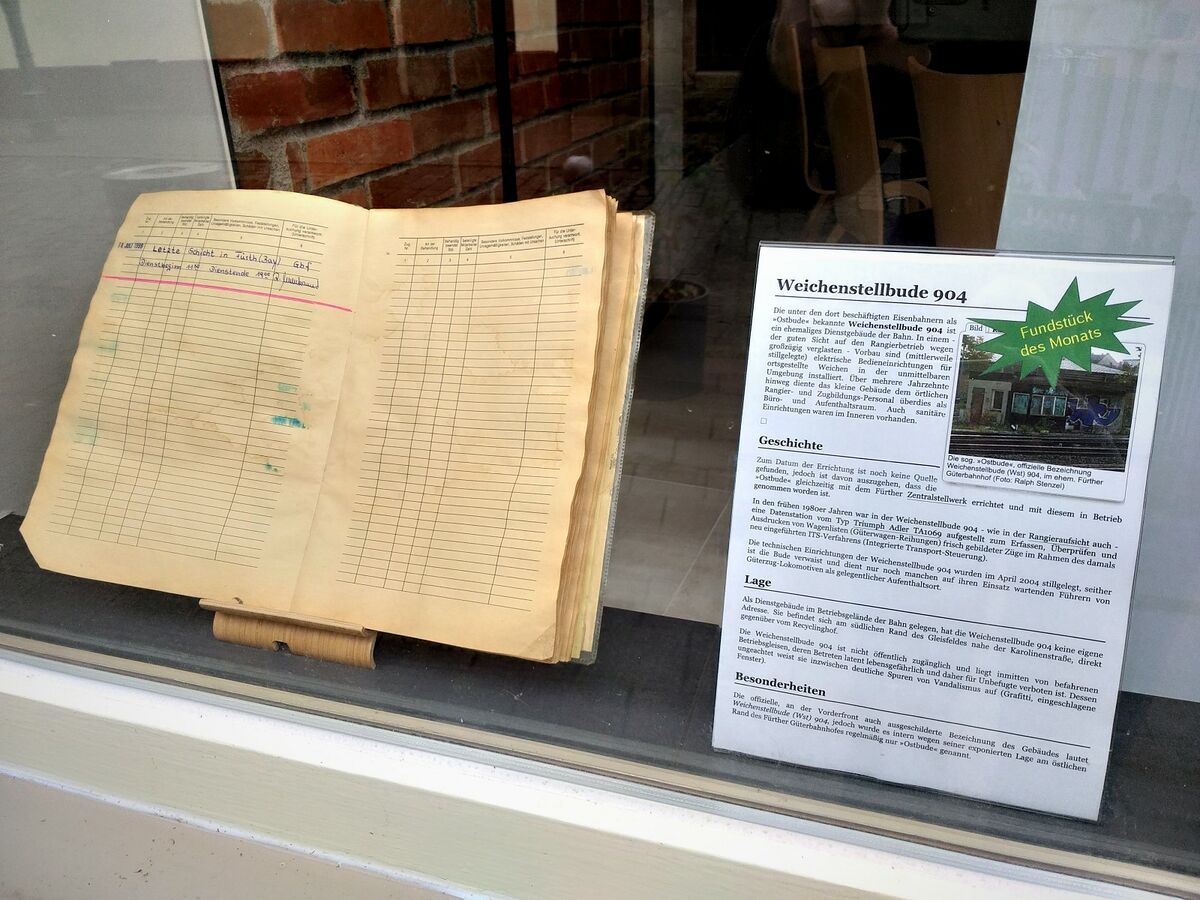 Letzte Schicht in Fürth (Bay) Gbf
Dienstbeginn Dienstende
Weichenstellbude 904
Die unter den dort beschäftigten Eisenbahnern als
»Ostbude« bekannte Weichenstellbude 904 ist
ein ehemaliges Dienstgebäude der Bahn. In einem -
der guten Sicht auf den Rangierbetrieb wegen
großzügig verglasten - Vorbau sind (mittlerweile
stillgelegte) elektrische Bedieneinrichtungen für
ortsgestellte Weichen in der unmittelbaren
Umgebung installiert. Über mehrere Jahrzehnte
hinweg diente das kleine Gebäude dem örtlichen
Rangier- und Zugbildungs-Personal überdies als
Büro- und Aufenthaltsraum. Auch sanitäre
Einrichtungen waren im Inneren vorhanden.
Bild
Fundstück
des Monats
Die sog. »Ostbude«, offizielle Bezeichnung
Weichenstellbude (Wst) 904, im ehem. Fürther
Güterbahnhof (Foto: Ralph Stenzel)
Geschichte
Zum Datum der Errichtung ist noch keine Quelle
gefunden, jedoch ist davon auszugehen, dass die
»Ostbude« gleichzeitig mit dem Fürther Zentralstellwerk errichtet und mit diesem in Betrieb
genommen worden ist.
In den frühen 1980er Jahren war in der Weichenstellbude 904 - wie in der Rangieraufsicht auch -
eine Datenstation vom Typ Triumph Adler TA1069 aufgestellt zum Erfassen, Überprüfen und
Ausdrucken von Wagenlisten (Güterwagen-Reihungen) frisch gebildeter Züge im Rahmen des damals
neu eingeführten ITS-Verfahrens (Integrierte Transport-Steuerung).
Die technischen Einrichtungen der Weichenstellbude 904 wurden im April 2004 stillgelegt, seither
ist die Bude verwaist und dient nur noch manchen auf ihren Einsatz wartenden Führern von
Güterzug-Lokomotiven als gelegentlicher Aufenthaltsort.
Lage
Als Dienstgebäude im Betriebsgelände der Bahn gelegen, hat die Weichenstellbude 904 keine eigene
Adresse. Sie befindet sich am südlichen Rand des Gleisfeldes nahe der Karolinenstraße, direkt
gegenüber vom Recyclinghof.
Die Weichenstellbude 904 ist nicht öffentlich zugänglich und liegt inmitten von befahrenen
Betriebsgleisen, deren Betreten latent lebensgefährlich und daher für Unbefugte verboten ist. Dessen
ungeachtet weist sie inzwischen deutliche Spuren von Vandalismus auf (Grafitti, eingeschlagene
Fenster).
Besonderheiten
Die offizielle, an der Vorderfront auch ausgeschilderte Bezeichnung des Gebäudes lautet
Weichenstellbude (Wst) 904, jedoch wurde es intern wegen seiner exponierten Lage am östlichen
Rand des Fürther Güterbahnhofes regelmäßig nur »Ostbude« genannt.